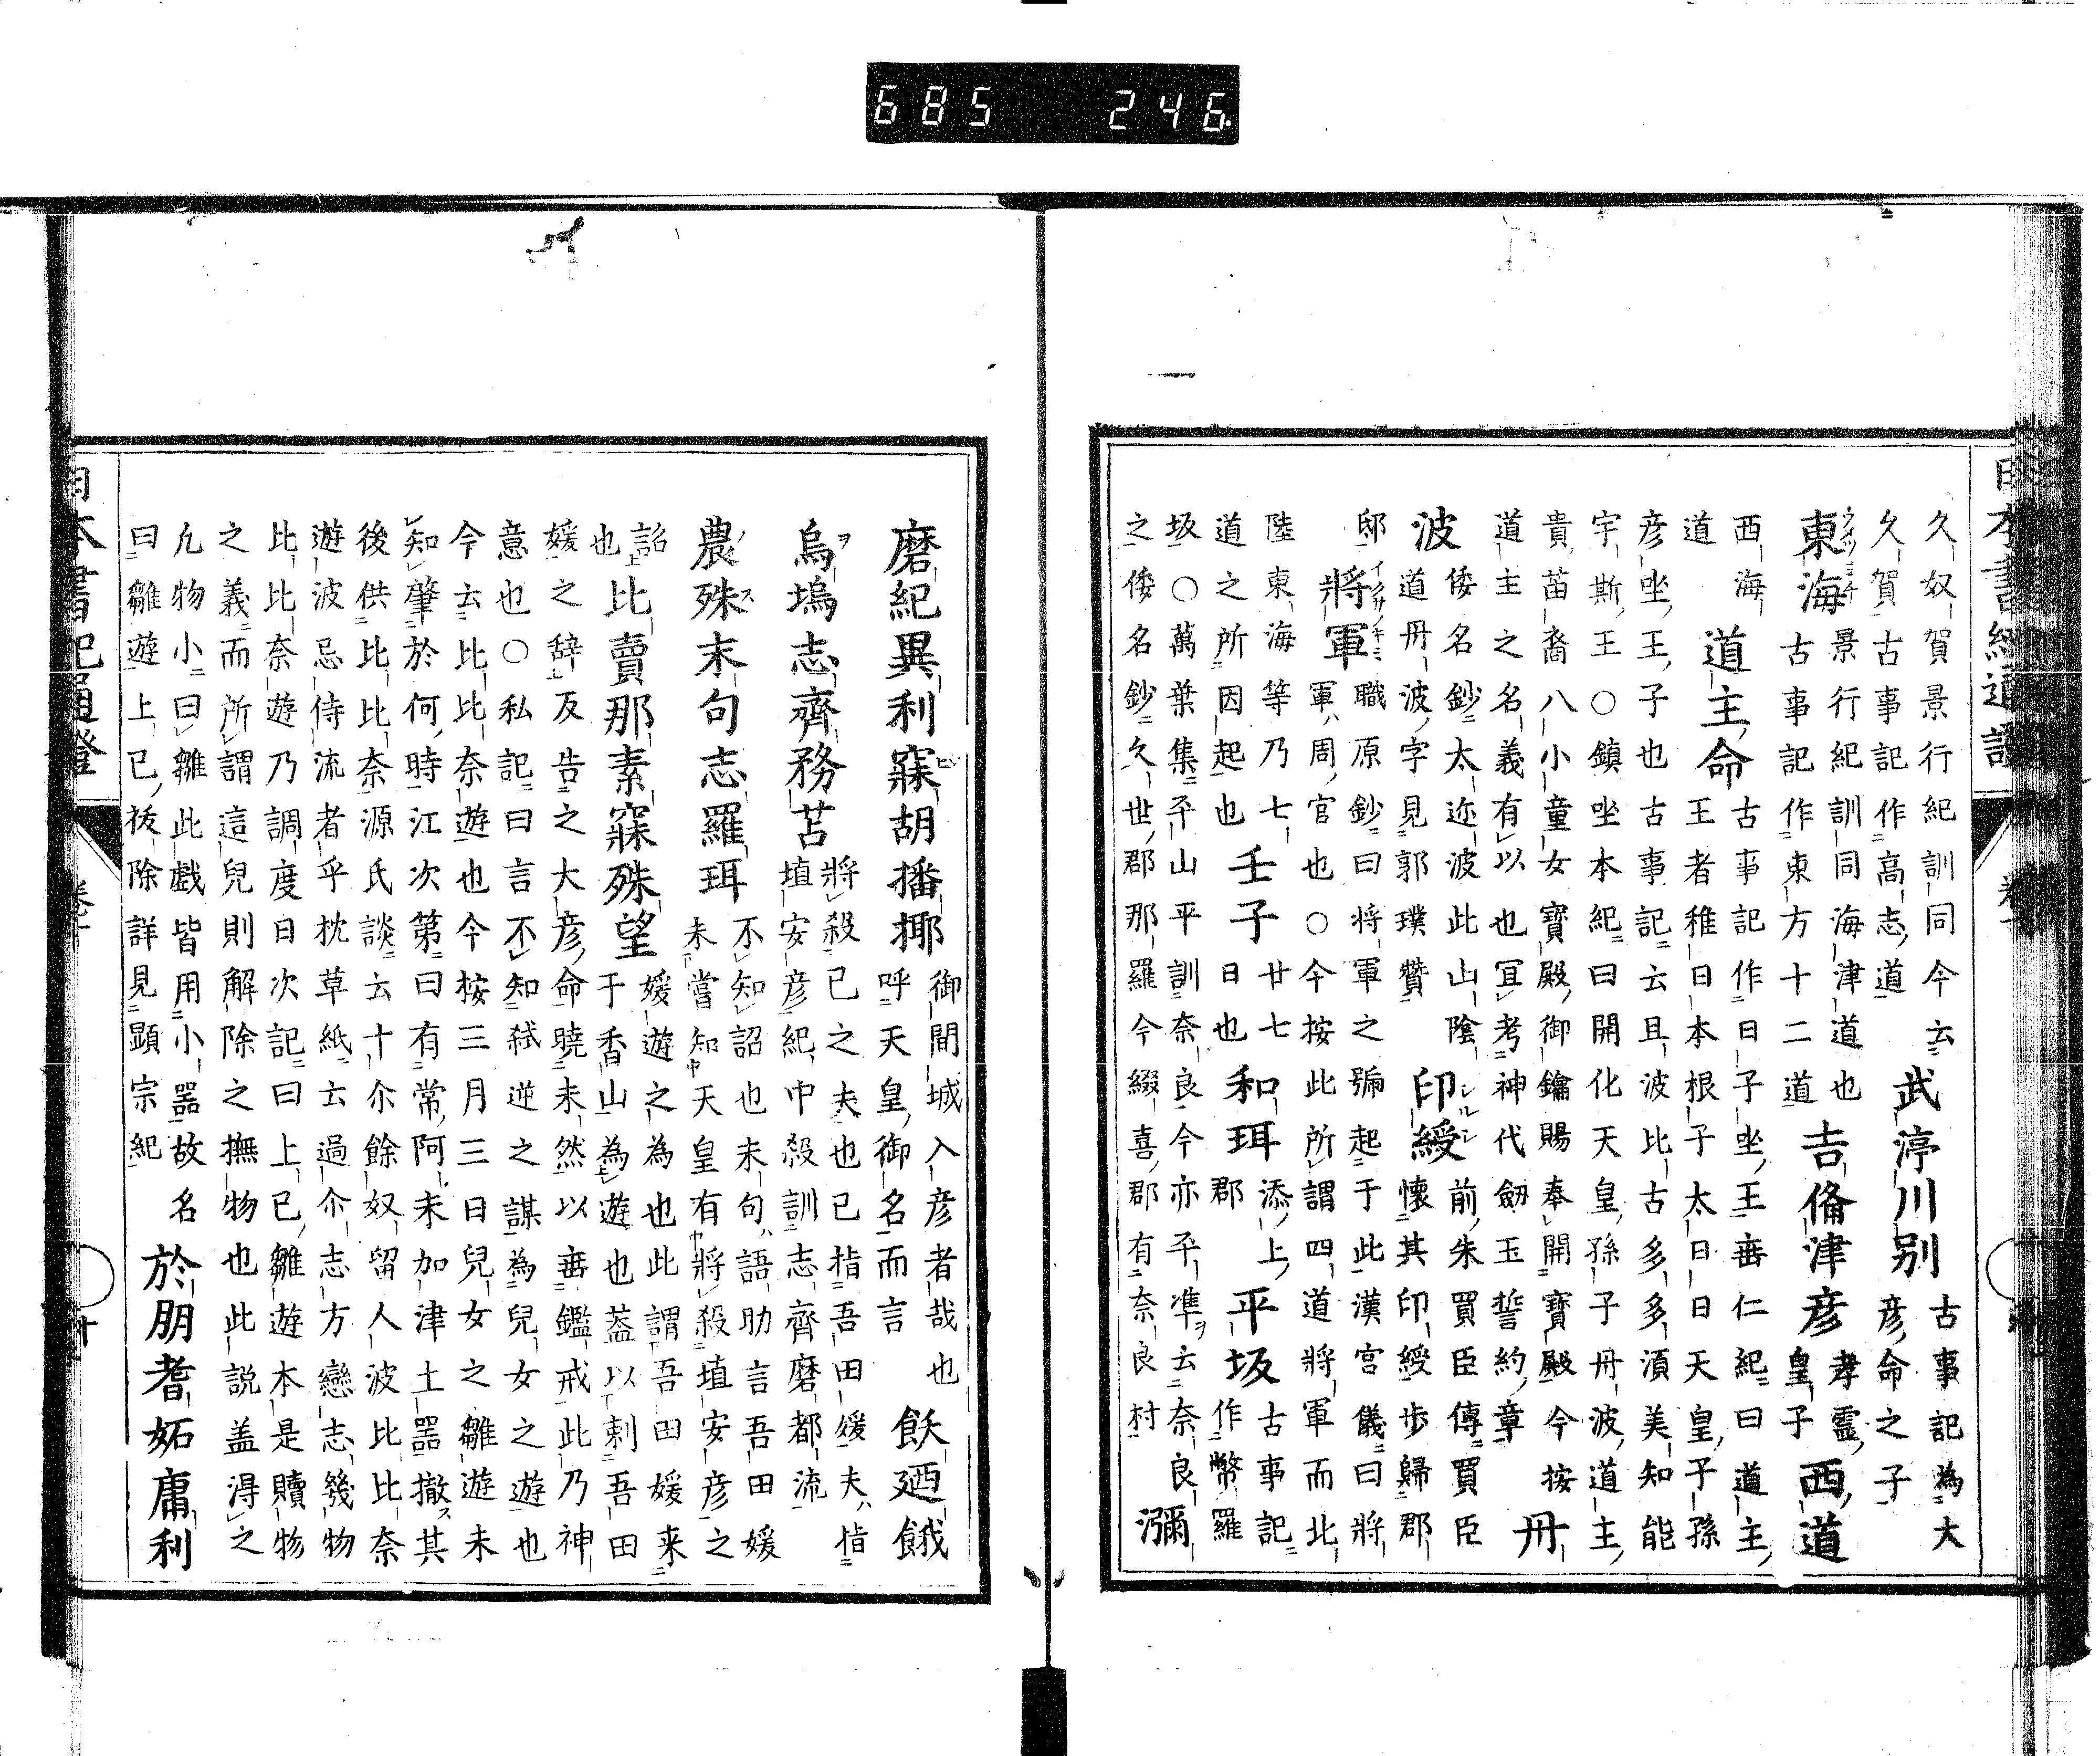 685 246
久奴賀景行紀訓同今云
久賀古事記作高志道
武渟川别
古事記為大
彦命之子
東海
景行紀訓同海津道也
古事記作東方十二道
吉備津彦
孝霊
皇子
西道
西海
道主命
古事記作日子坐王垂仁紀曰道主
王者稚日本根子太日日天皇子孫
道
彦坐王子也古事記云且波比古多多須美知能
宇斯王○鎮坐本紀曰開化天皇孫子丹波道主
貴苗裔八小童女寶殿御鑰賜奉開寶殿今按
道主之名義有以也冝考神代劔玉誓約章
丹
波
倭名鈔太迩波此山陰
道丹波字見郭璞賛
印綬
前朱買臣傳買臣
懐其印綬歩歸郡
邸
將軍
職原鈔曰将軍之號起于此漢宮儀曰將
軍周官也○今按此所謂四道將軍而北
陸東海等乃七
道之所因起也
壬子
廿七
日也
和珥
添上
郡
平坂
古事記
作幣羅
坂○萬葉集平山平訓奈良今亦平準云奈良
之倭名鈔久世郡那羅今綴喜郡有奈良村
瀰
磨紀異利寐胡播揶
御間城入彦者哉也
呼天皇御名而言
飫廼餓
烏塢志齊務苫
將殺已之夫也已指吾田媛夫指
埴安彦紀中殺訓志齊磨都流
農殊末句志羅珥
不知詔也末句語助言吾田媛
未嘗知天皇有將殺埴安彦之
詔
也
比賣那素寐殊望
媛遊之為也此謂吾田媛来
于香山為遊也葢以刺吾田
媛之辞反告之大彦命暁未然以垂鑑戒此乃神
意也○私記曰言不知弑逆之謀為兒女之遊也
今云比比奈遊也今按三月三日兒女之雛遊未
知肇於何時江次第曰有常阿未加津土噐撤其
後供比比奈源氏談云十尒餘奴留人波比比奈
遊波忌侍流者乎枕草紙云過尒志方戀志幾物
比比奈遊乃調度日次記曰上已雛遊本是贖物
之義而所謂這兒則解除之撫物也此説盖淂之
凢物小曰雛此戯皆用小噐故名
曰雛遊上已祓除詳見顕宗紀
於朋耆妬庸利